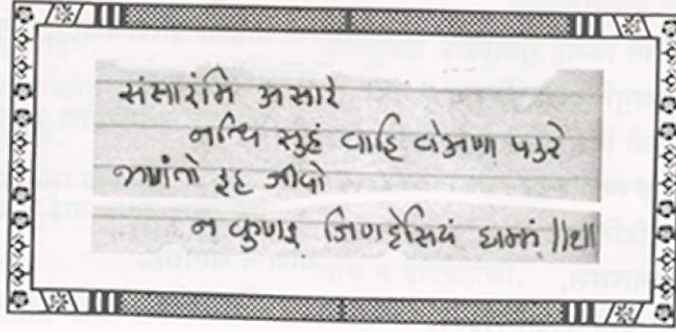 संसारंमि असारे
नत्थि सुहं वाहि वेअणा पउरे
जाणंतो इह जीवो
न कुणइ जिणदेसियं धम्मं ॥१॥